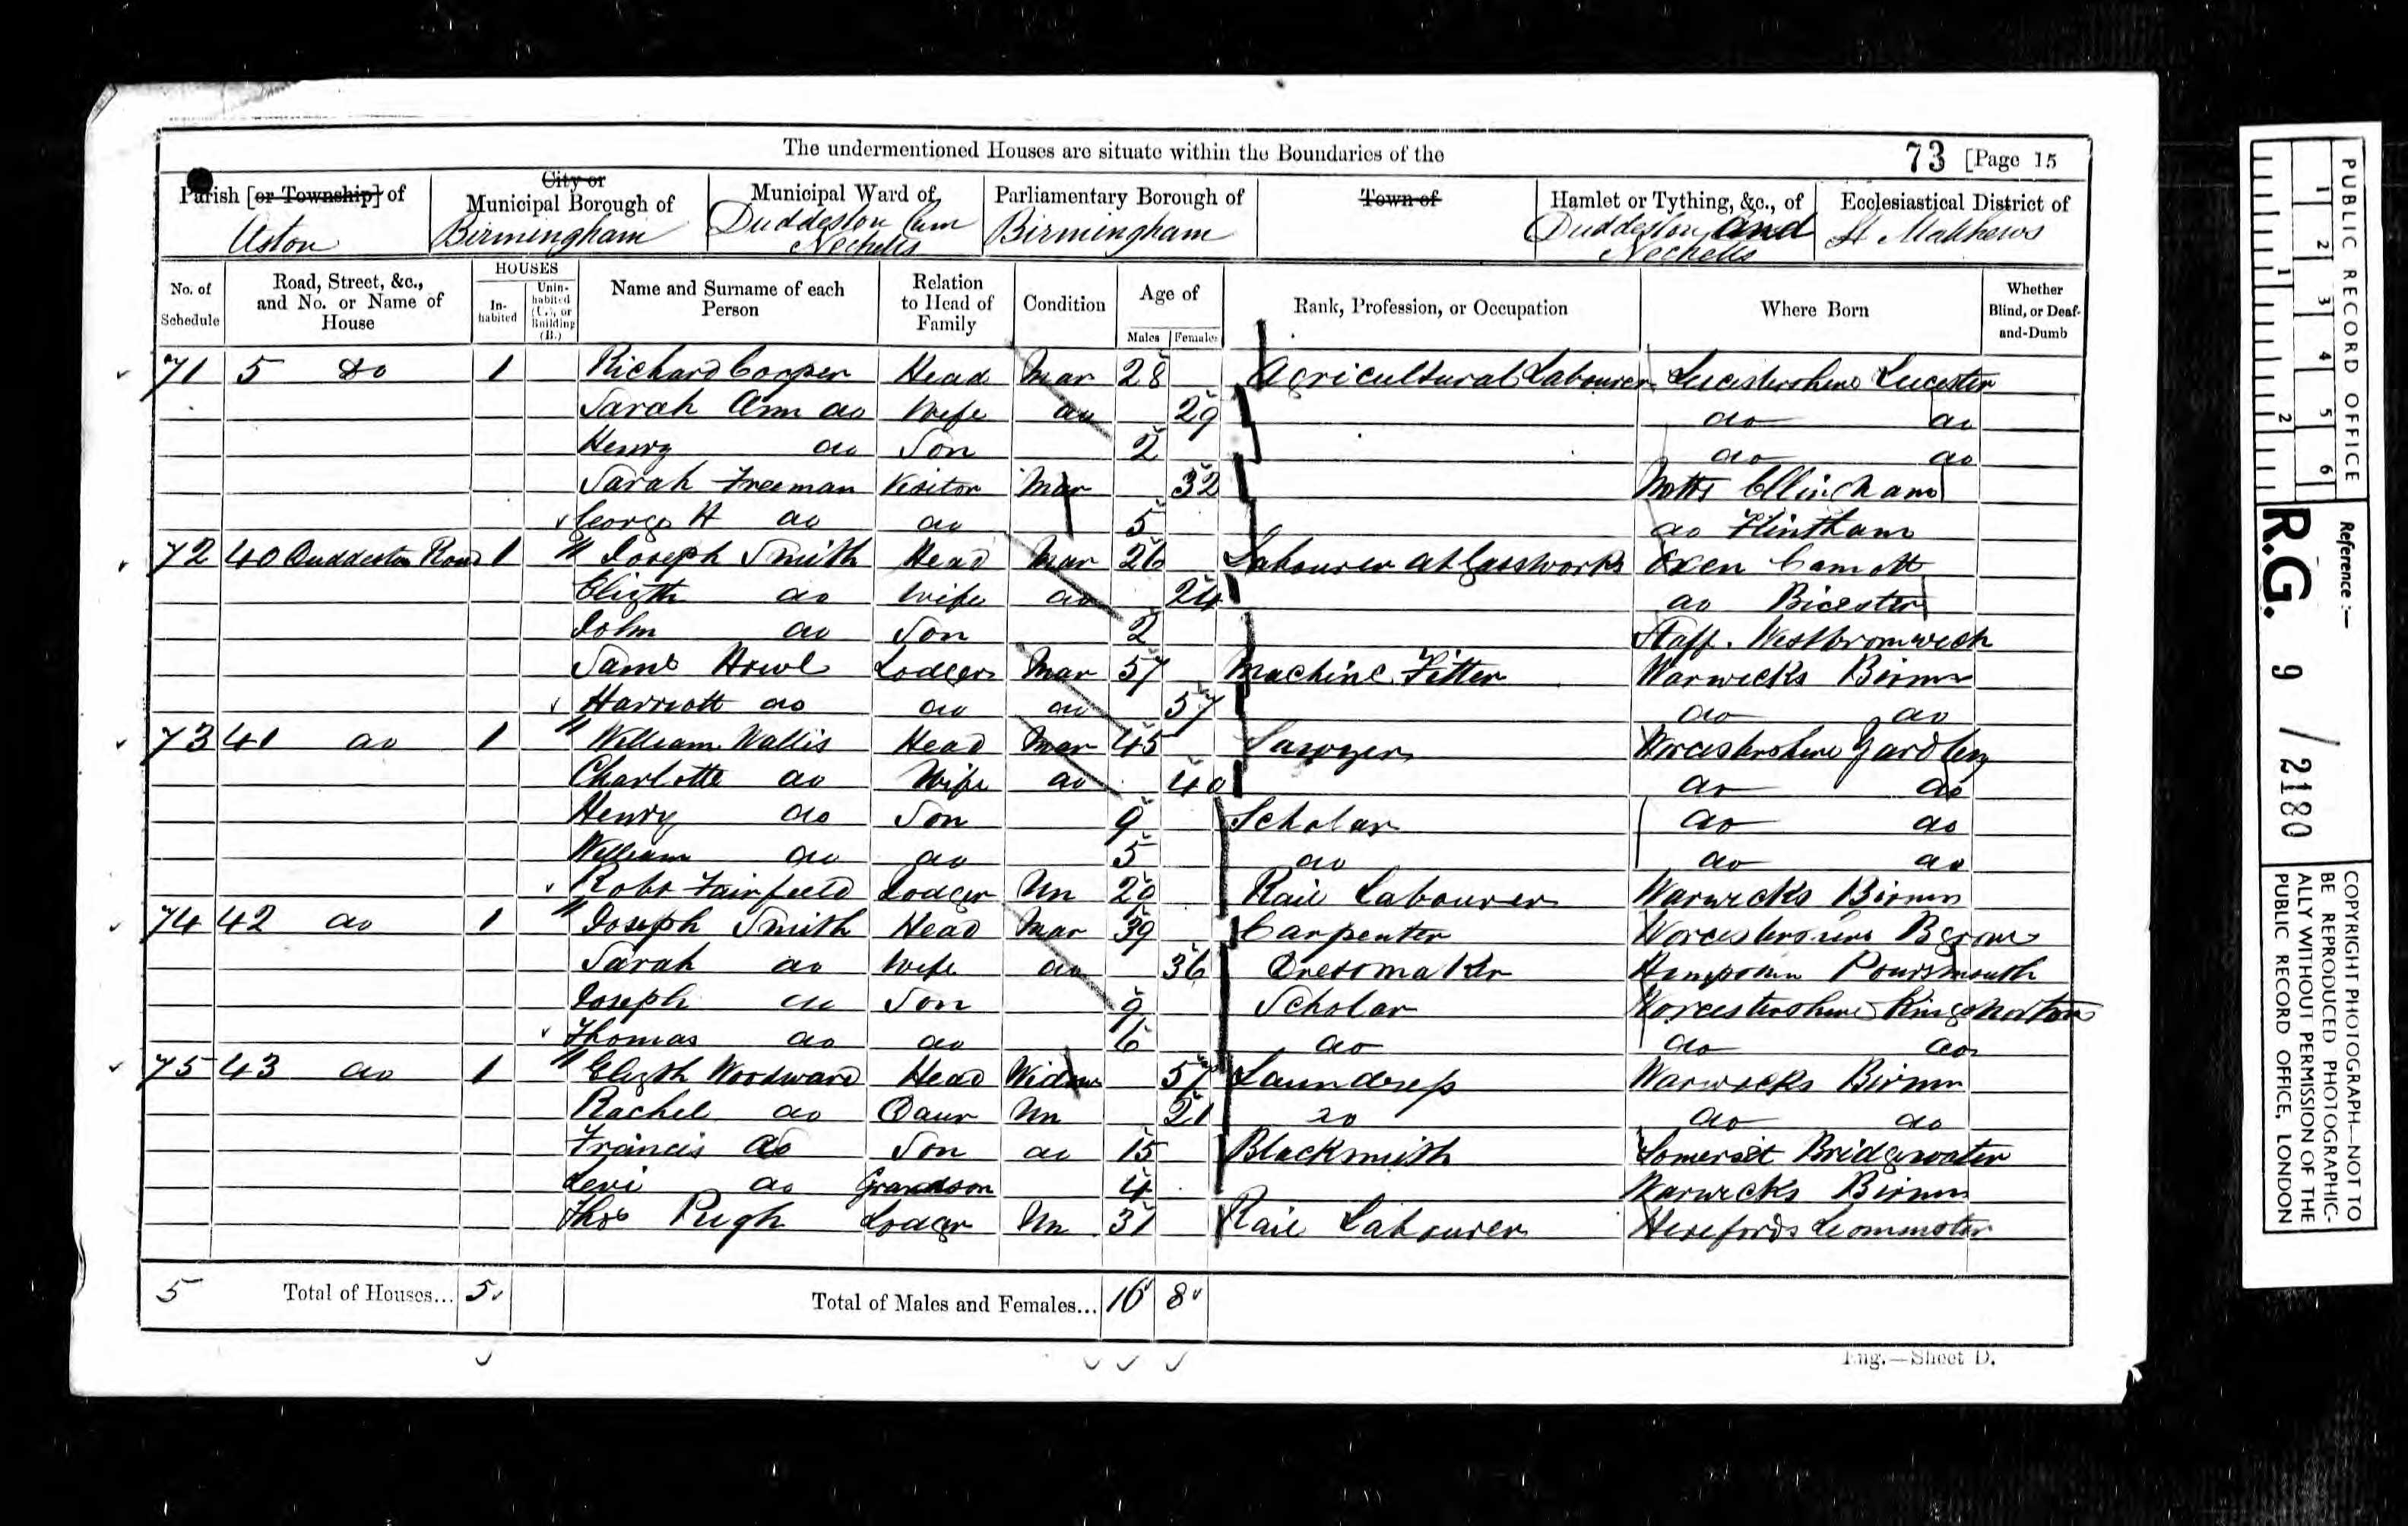 The undermentioned Houses are situate within the Boundaries of the
73 [Page 15
Parish [or Township] of
Aston
City or Municipal Borough of
Birmingham
Municipal Ward of
Duddeston Cum
Nechells
Parliamentary Borough of
Birmingham
Town of
Hamlet or Tything, &c., of
Duddeston and
Nechells
Ecclesiastical District of
St Matthews
No. of Schedule
Road, Street, &c., and No. or Name of House
HOUSES
In-habited
Unin-habited (U.), or Building (B.)
Name and Surname of each Person
Relation to Head of Family
Condition
Age of
Males Females
Rank, Profession, or Occupation
Where Born
Whether Blind, or Deaf-and-Dumb
71 5 do 1 Richard Cooper Head Mar 28 Agricultural Labourer Leicestershire Leicester
Sarah Ann do Wife do 29 do do
Henry do Son 2 do do
Sarah Freeman Visitor Mar 32 Notts
George H do do 5 do Flintham
72 40 Duddeston Road 1 Joseph Smith Head Mar 26 Labourer at Glassworks Oxen
Elizth do Wife do 24 do Bicester
John do Son 2 Staff. Westbromwich
Saml Howl Lodger Mar 57 Machine Fitter Warwicks Birmm
Harriott do do do 57 do do
73 41 do 1 William Wallis Head Mar 45 Sawyer Worcestershire Yardley
Charlotte do Wife do 40 do do
Henry do Son 9 Scholar do do
William do do 5 do do do
Robt Fairfield Lodger Un 20 Rail Labourer Warwicks Birmm
74 42 do 1 Joseph Smith Head Mar 39 Carpenter Worcestershire
Sarah do Wife do 36 Dressmaker Portsmouth
Joseph do Son 9 Scholar Worcestershire Kingsnorton
Thomas do do 6 do do do
75 43 do 1 Elizth Woodward Head Widow 57 Laundress Warwicks Birmm
Rachel do Daur Un 21 do do do
Francis do Son do 15 Blacksmith Somerset Bridgwater
Levi do Grandson 4 Warwicks Birmm
Thos Pugh Lodger Un 31 Rail Labourer Herefords Leominster
5 Total of Houses... 5
Total of Males and Females... 16 8
Eng.—Sheet D.
PUBLIC RECORD OFFICE
1 2 3 4 5 6
1 2
Reference :—
R.G. 9 / 2180
COPYRIGHT PHOTOGRAPH—NOT TO
BE REPRODUCED PHOTOGRAPHIC-
ALLY WITHOUT PERMISSION OF THE
PUBLIC RECORD OFFICE, LONDON